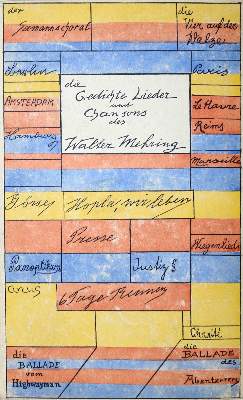 der
Seemannschoral
die
Vier auf der
Walze
Berlin
Paris
AMSTERDAM
Le Havre
Hamburg
Reims
Marseille
die
Gedichte Lieder
und
Chansons
des
Walter Mehring
Börse
Hopla, wir leben
Presse
Wiegenlied
Panoptikum
Justiz §
6 Tage Rennen
die
BALLADE
vom
Highwayman
die
BALLADE
des
Abenteurers